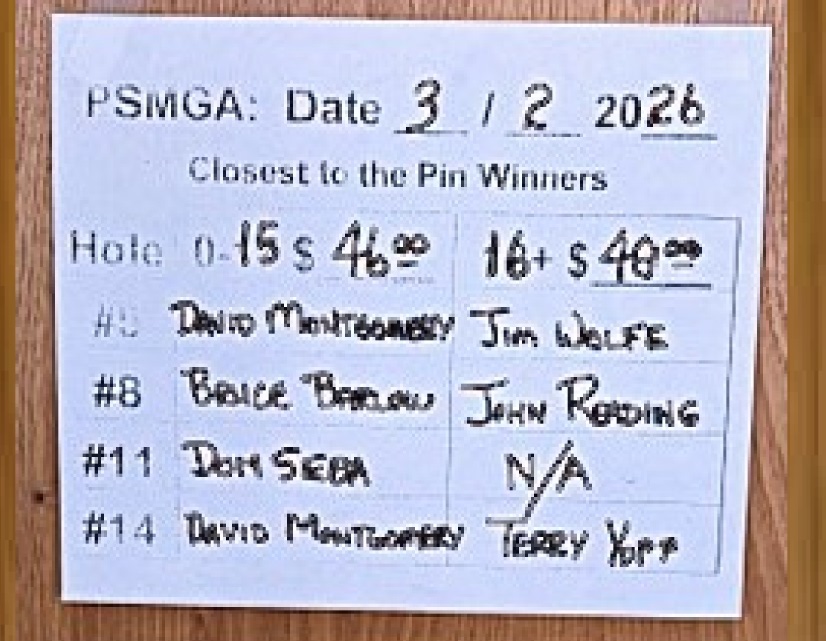 PSMGA: Date 3 / 2 2026
Closest to the Pin Winners
Hole 0-15 $ 46⁰⁰ 16+ $ 40⁰⁰
David Montgomery Jim Wolfe
#8 Bruce Barlow John Reading
#11 Dom Seba N/A
#14 David Montgomery Terry